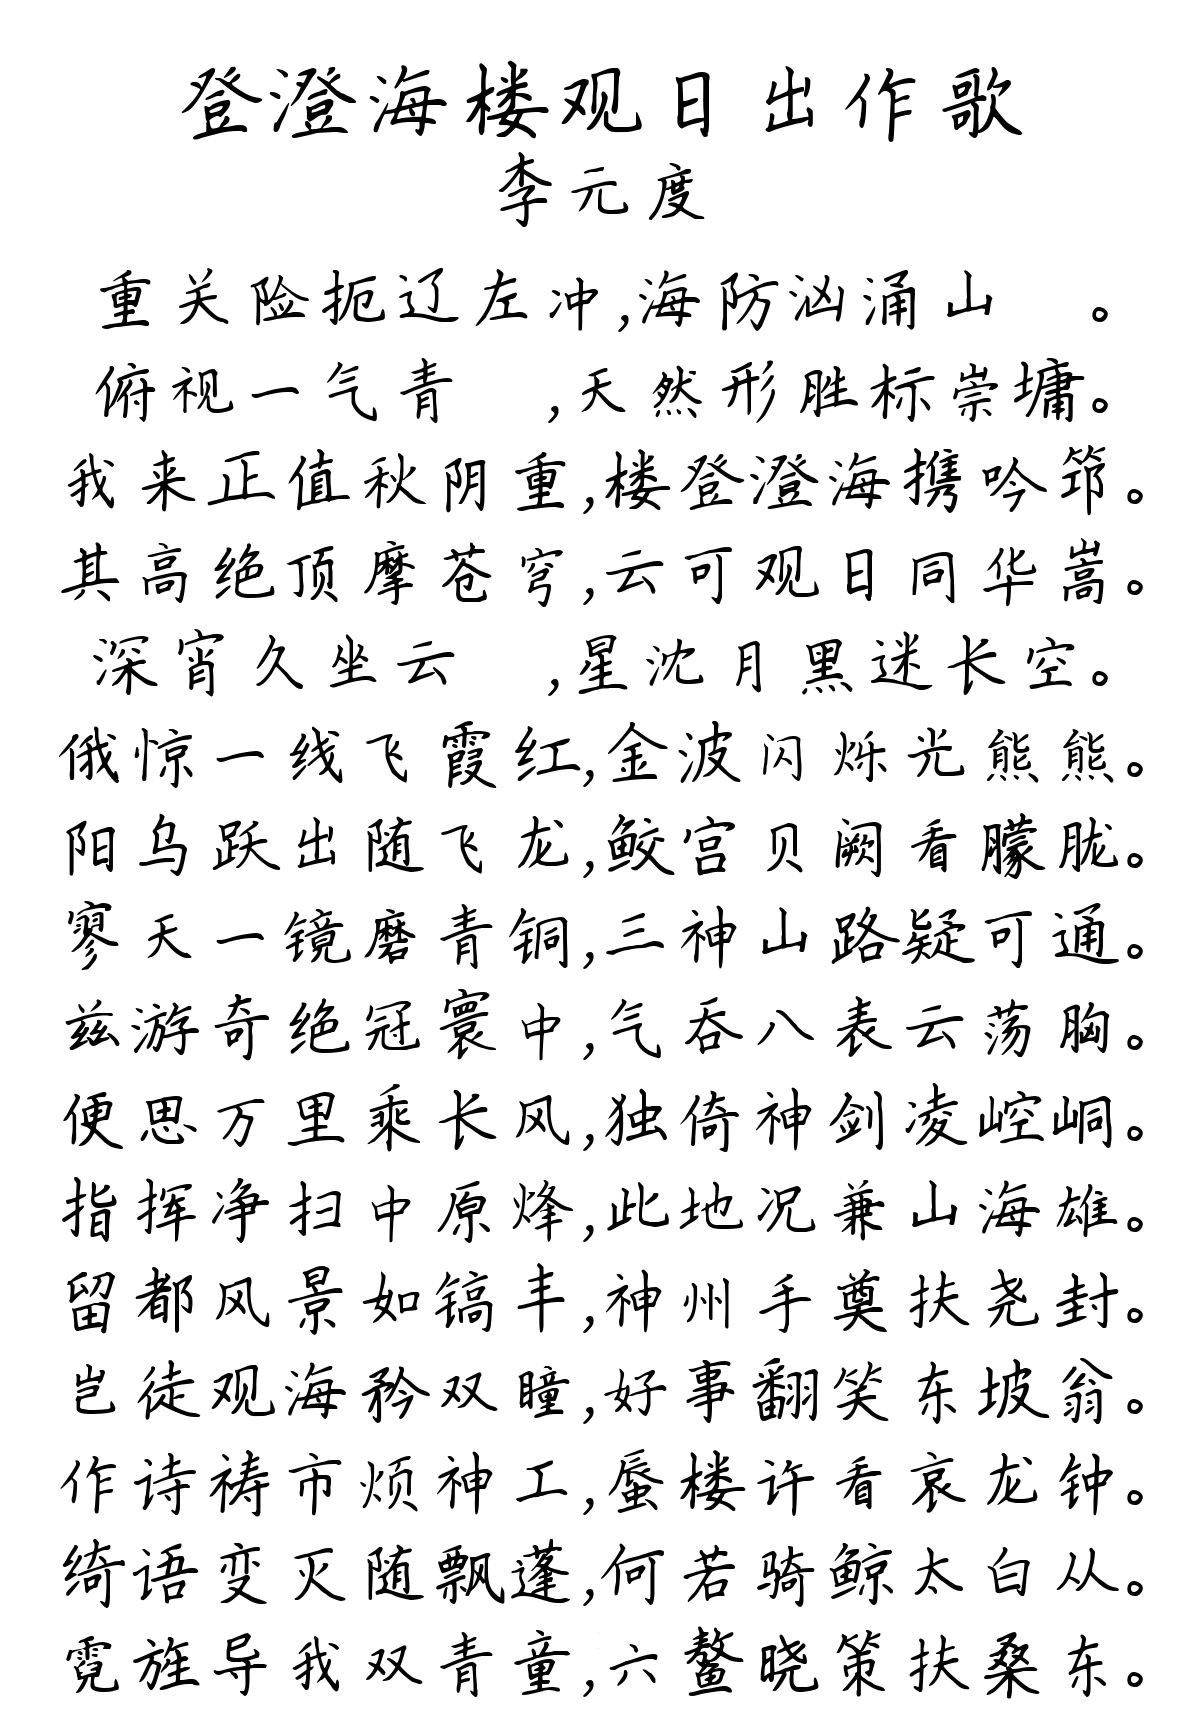 登澄海楼观日出作歌
李元度
重关险扼辽左冲,海防汹涌山 。
俯视一气青 ,天然形胜标崇墉。
我来正值秋阴重,楼登澄海携吟筇。
其高绝顶摩苍穹,云可观日同华嵩。
深宵久坐云 ,星沈月黑迷长空。
俄惊一线飞霞红,金波闪烁光熊熊。
阳乌跃出随飞龙,鲛宫贝阙看朦胧。
寥天一镜磨青铜,三神山路疑可通。
兹游奇绝冠寰中,气吞八表云荡胸。
便思万里乘长风,独倚神剑凌崆峒。
指挥净扫中原烽,此地况兼山海雄。
留都风景如镐丰,神州手奠扶尧封。
岂徒观海矜双瞳,好事翻笑东坡翁。
作诗祷市烦神工,蜃楼许看哀龙钟。
绮语变灭随飘蓬,何若骑鲸太白从。
霓旌导我双青童,六鳌晓策扶桑东。